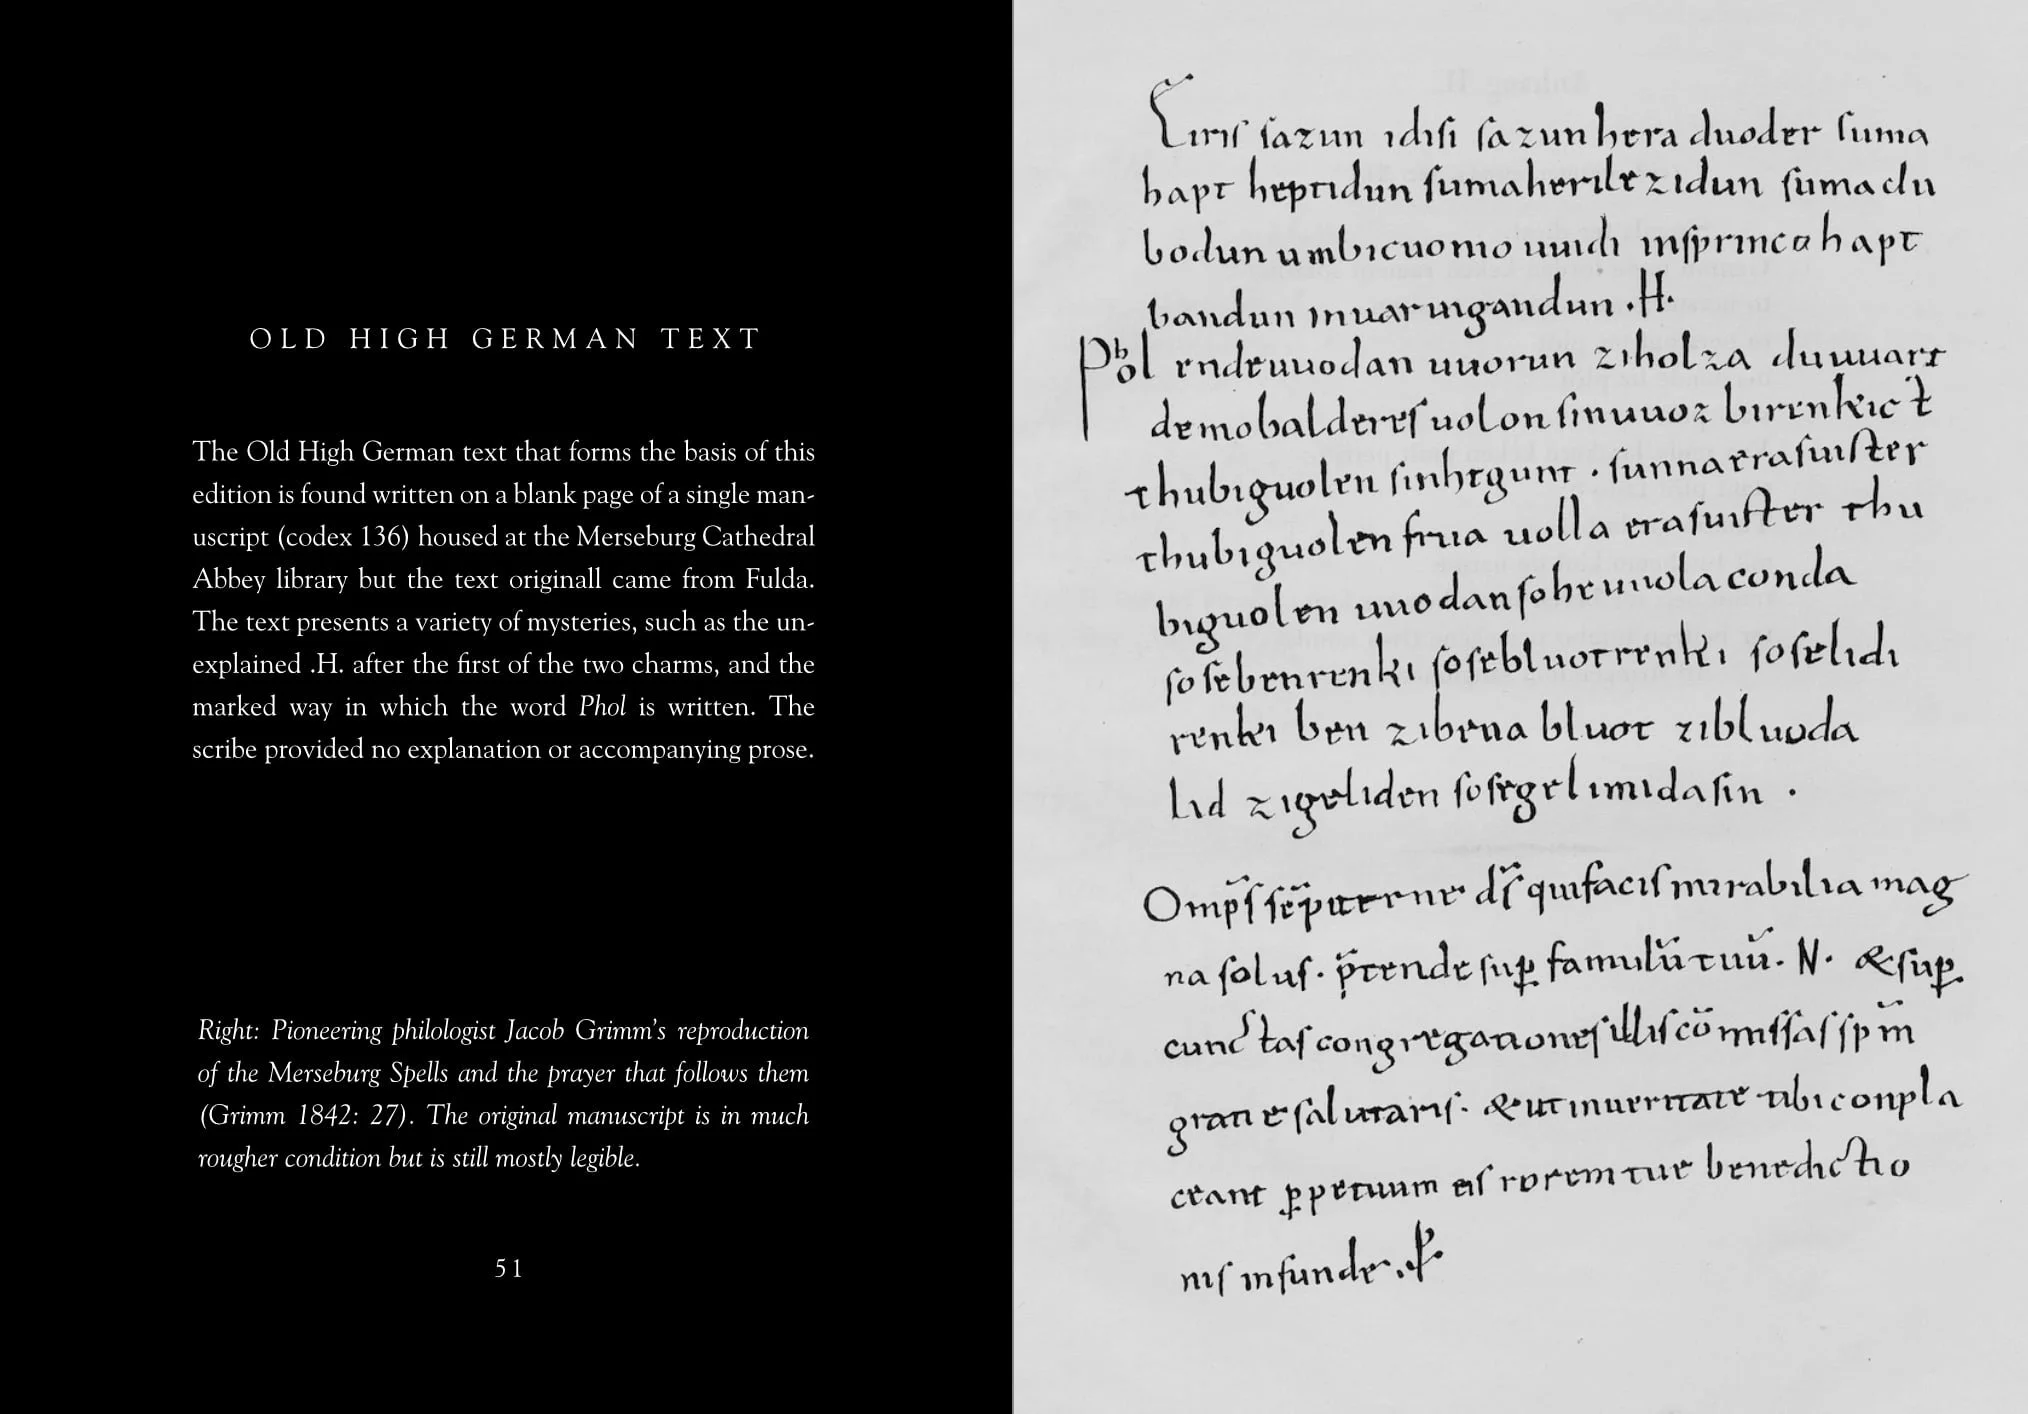 OLD HIGH GERMAN TEXT
The Old High German text that forms the basis of this
edition is found written on a blank page of a single man-
uscript (codex 136) housed at the Merseburg Cathedral
Abbey library but the text originall came from Fulda.
The text presents a variety of mysteries, such as the un-
explained .H. after the first of the two charms, and the
marked way in which the word Phol is written. The
scribe provided no explanation or accompanying prose.
Right: Pioneering philologist Jacob Grimm's reproduction
of the Merseburg Spells and the prayer that follows them
(Grimm 1842: 27). The original manuscript is in much
rougher condition but is still mostly legible.
51
Eiriſ ſazun idiſi ſazun hera duoder ſuma
hapt heptidun ſumaherilezidun ſumaclu
bodun umbicuonio uuidi inſprincahapt
bandun inuar uigandun .H.
Phol endeuuodan uuorun ziholza du uuart
demobaldereſ uolon ſinuuoz birenkic t̄
thubiguolen ſinhtgunt . ſunnaeraſuiſter
thubiguolen friia uolla eraſuiſter thu
biguolen uuodan ſoheuuolaconda
ſoſebenrenki ſoſebluotrenki ſoſelidi
renki ben zibena bluot zibluoda
lid zigeliden ſoſegelimidaſin .
Omp̄ſ ſēpiterne d̄ſ quifaciſ mirabilia mag
na ſoluſ . p̄tende ſuꝑ famulū tuū . N . &ſuꝑ
cunctaſ congregationeſ illiſ cōmiſſaſ ſpm̄
gratie ſalutariſ . & ut inueritate tibi conpla
ceant ꝑpetuum eiſ rorem tue benedictio
niſ infunde .